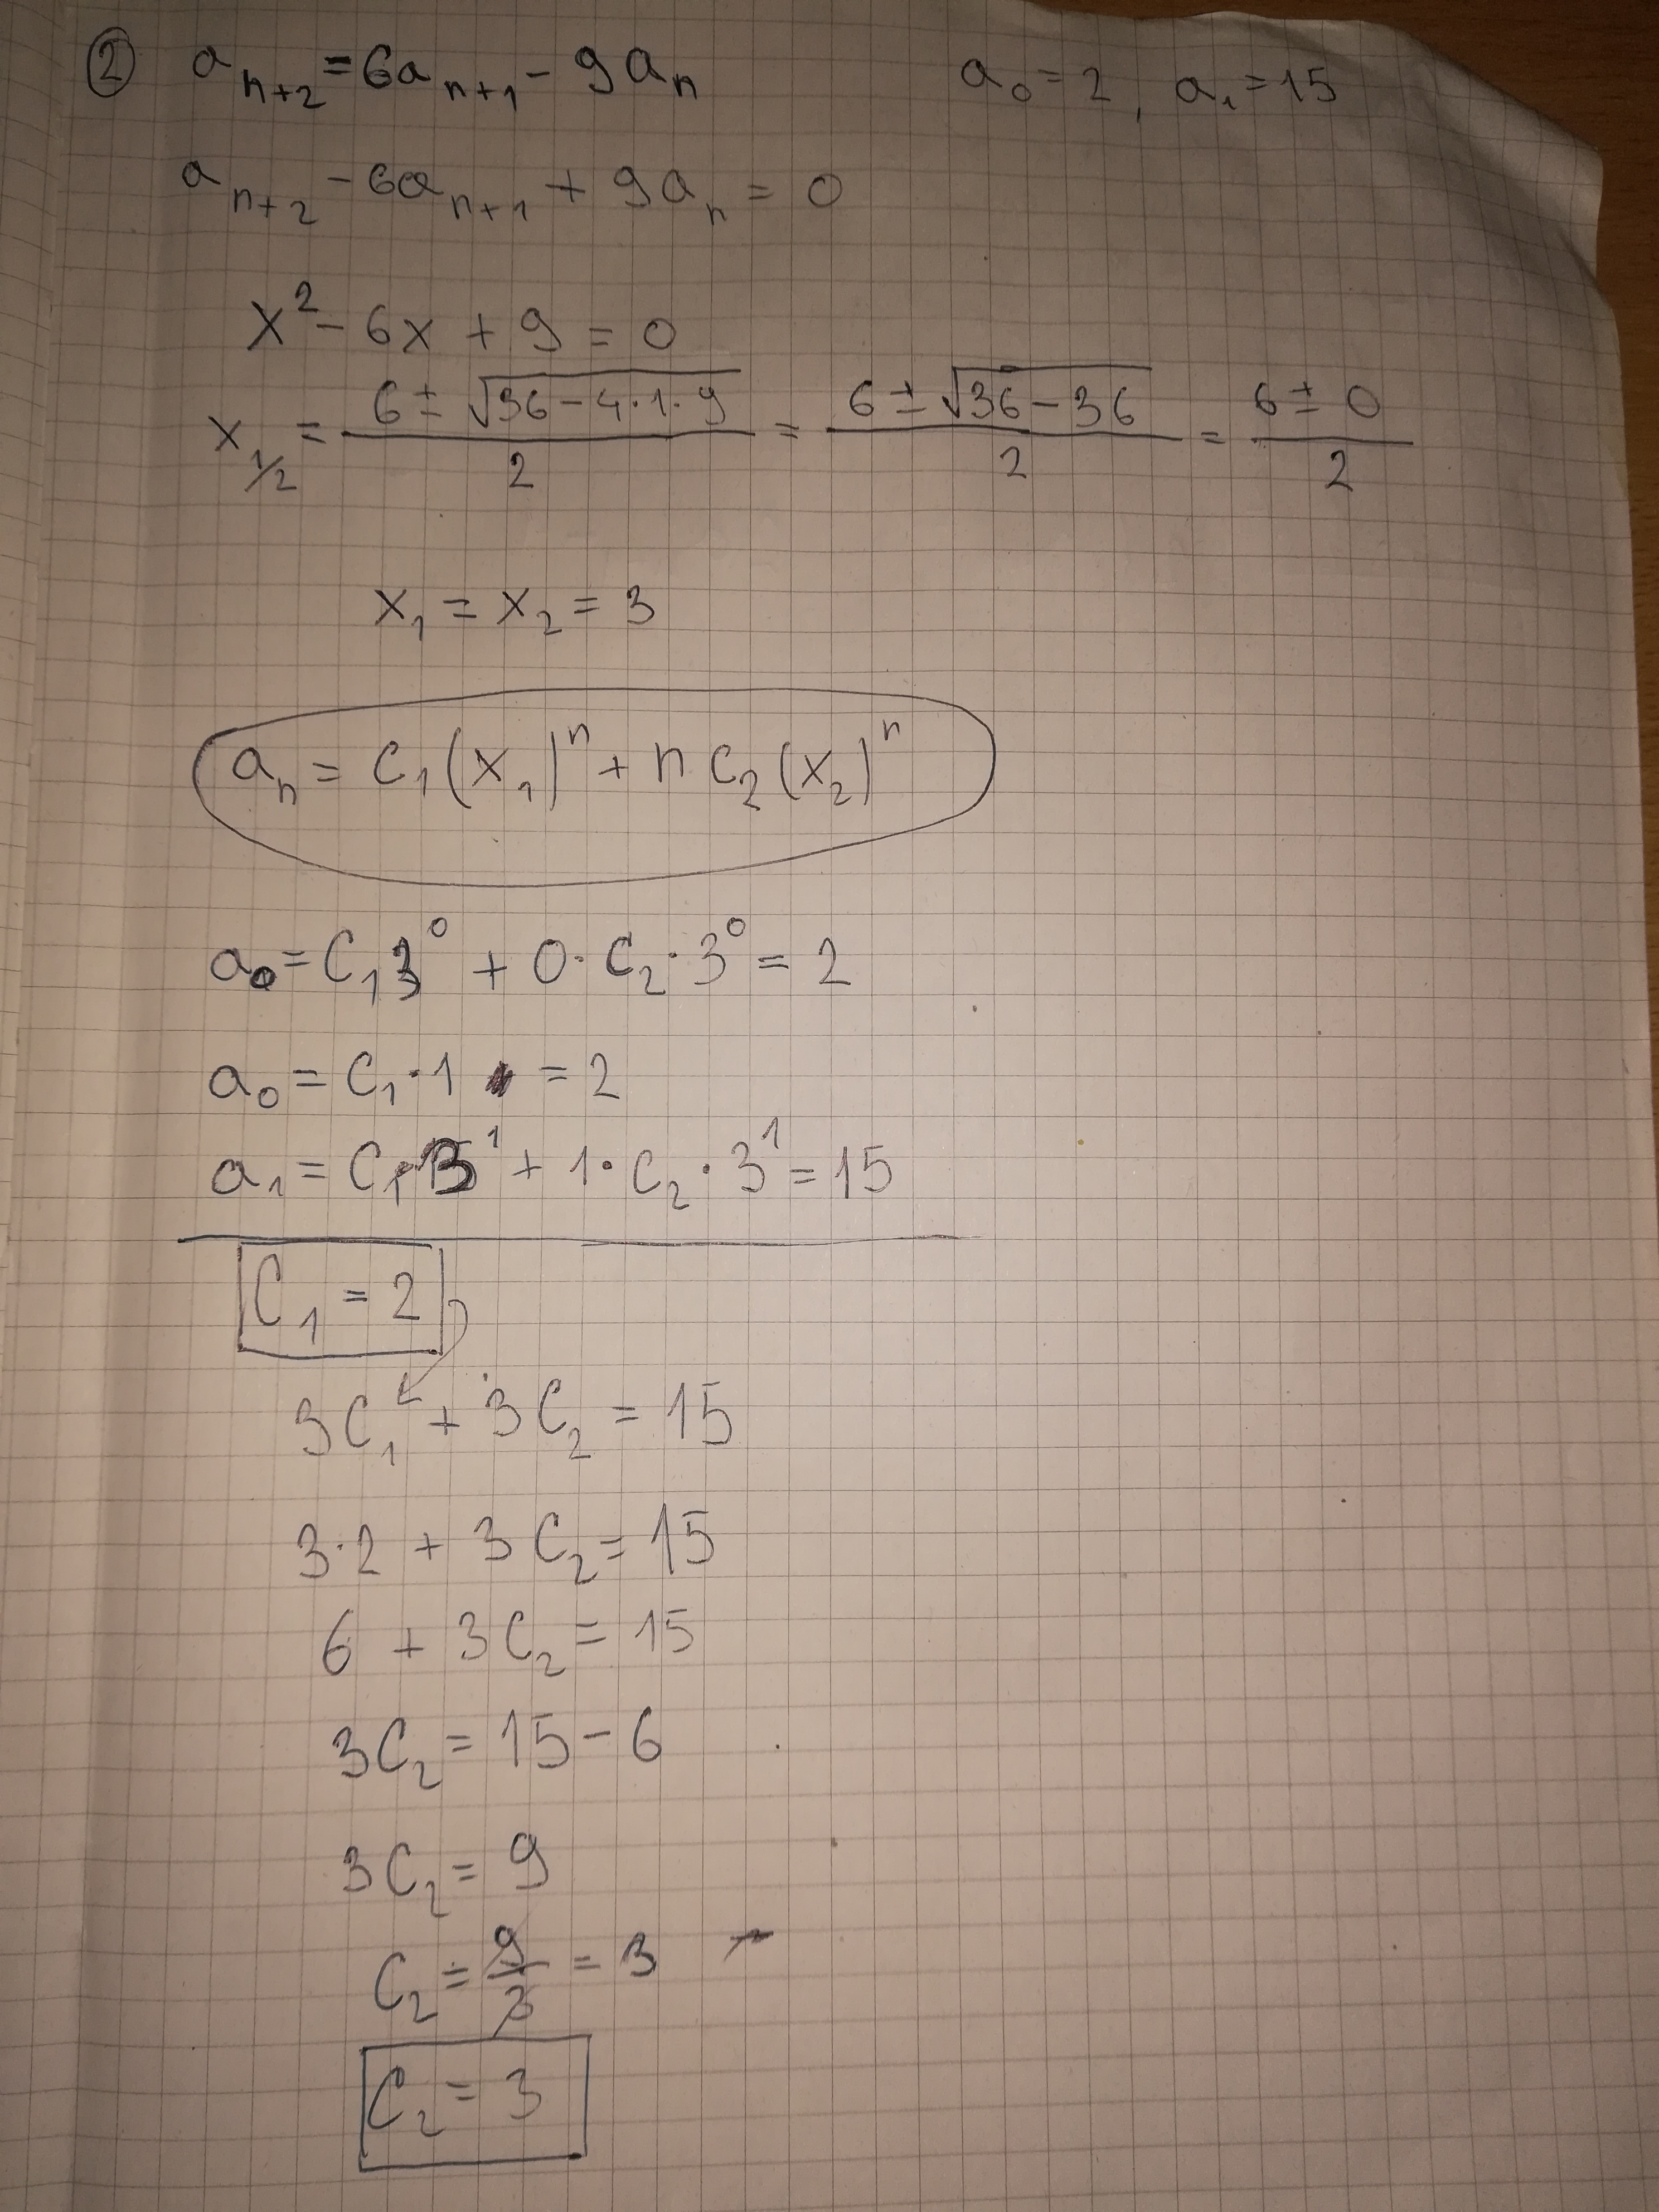 ② aₙ₊₂ = 6aₙ₊₁ - 9aₙ a₀ = 2, a₁ = 15
aₙ₊₂ - 6aₙ₊₁ + 9aₙ = 0
x² - 6x + 9 = 0
x_1/2 = (6 ± √(36 - 4·1·9))/2 = (6 ± √(36 - 36))/2 = (6 ± 0)/2
x₁ = x₂ = 3
aₙ = C₁(x₁)ⁿ + n C₂(x₂)ⁿ
a₀ = C₁3⁰ + 0·C₂·3⁰ = 2
a₀ = C₁·1 = 2
a₁ = C₁·3¹ + 1·C₂·3¹ = 15
C₁ = 2
3C₁ + 3C₂ = 15
3·2 + 3C₂ = 15
6 + 3C₂ = 15
3C₂ = 15 - 6
3C₂ = 9
C₂ = 9/3 = 3
C₂ = 3